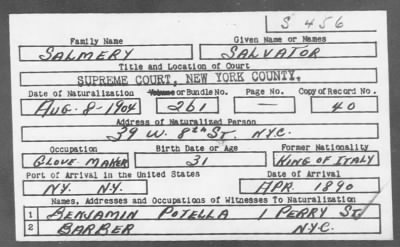 S 456
Family Name Given Name or Names
SALMERY SALVATOR
Title and Location of Court
SUPREME COURT, NEW YORK COUNTY,
Date of Naturalization Volume or Bundle No. Page No. Copy of Record No.
AUG. 8-1904 261 — 40
Address of Naturalized Person
39 W. 8th ST. N.Y.C.
Occupation Birth Date or Age Former Nationality
GLOVE MAKER 31 KING OF ITALY
Port of Arrival in the United States Date of Arrival
N.Y. N.Y. APR. 1890
Names, Addresses and Occupations of Witnesses To Naturalization
1 BENJAMIN POTELLA 1 PERRY ST.
2 BARBER N.Y.C.